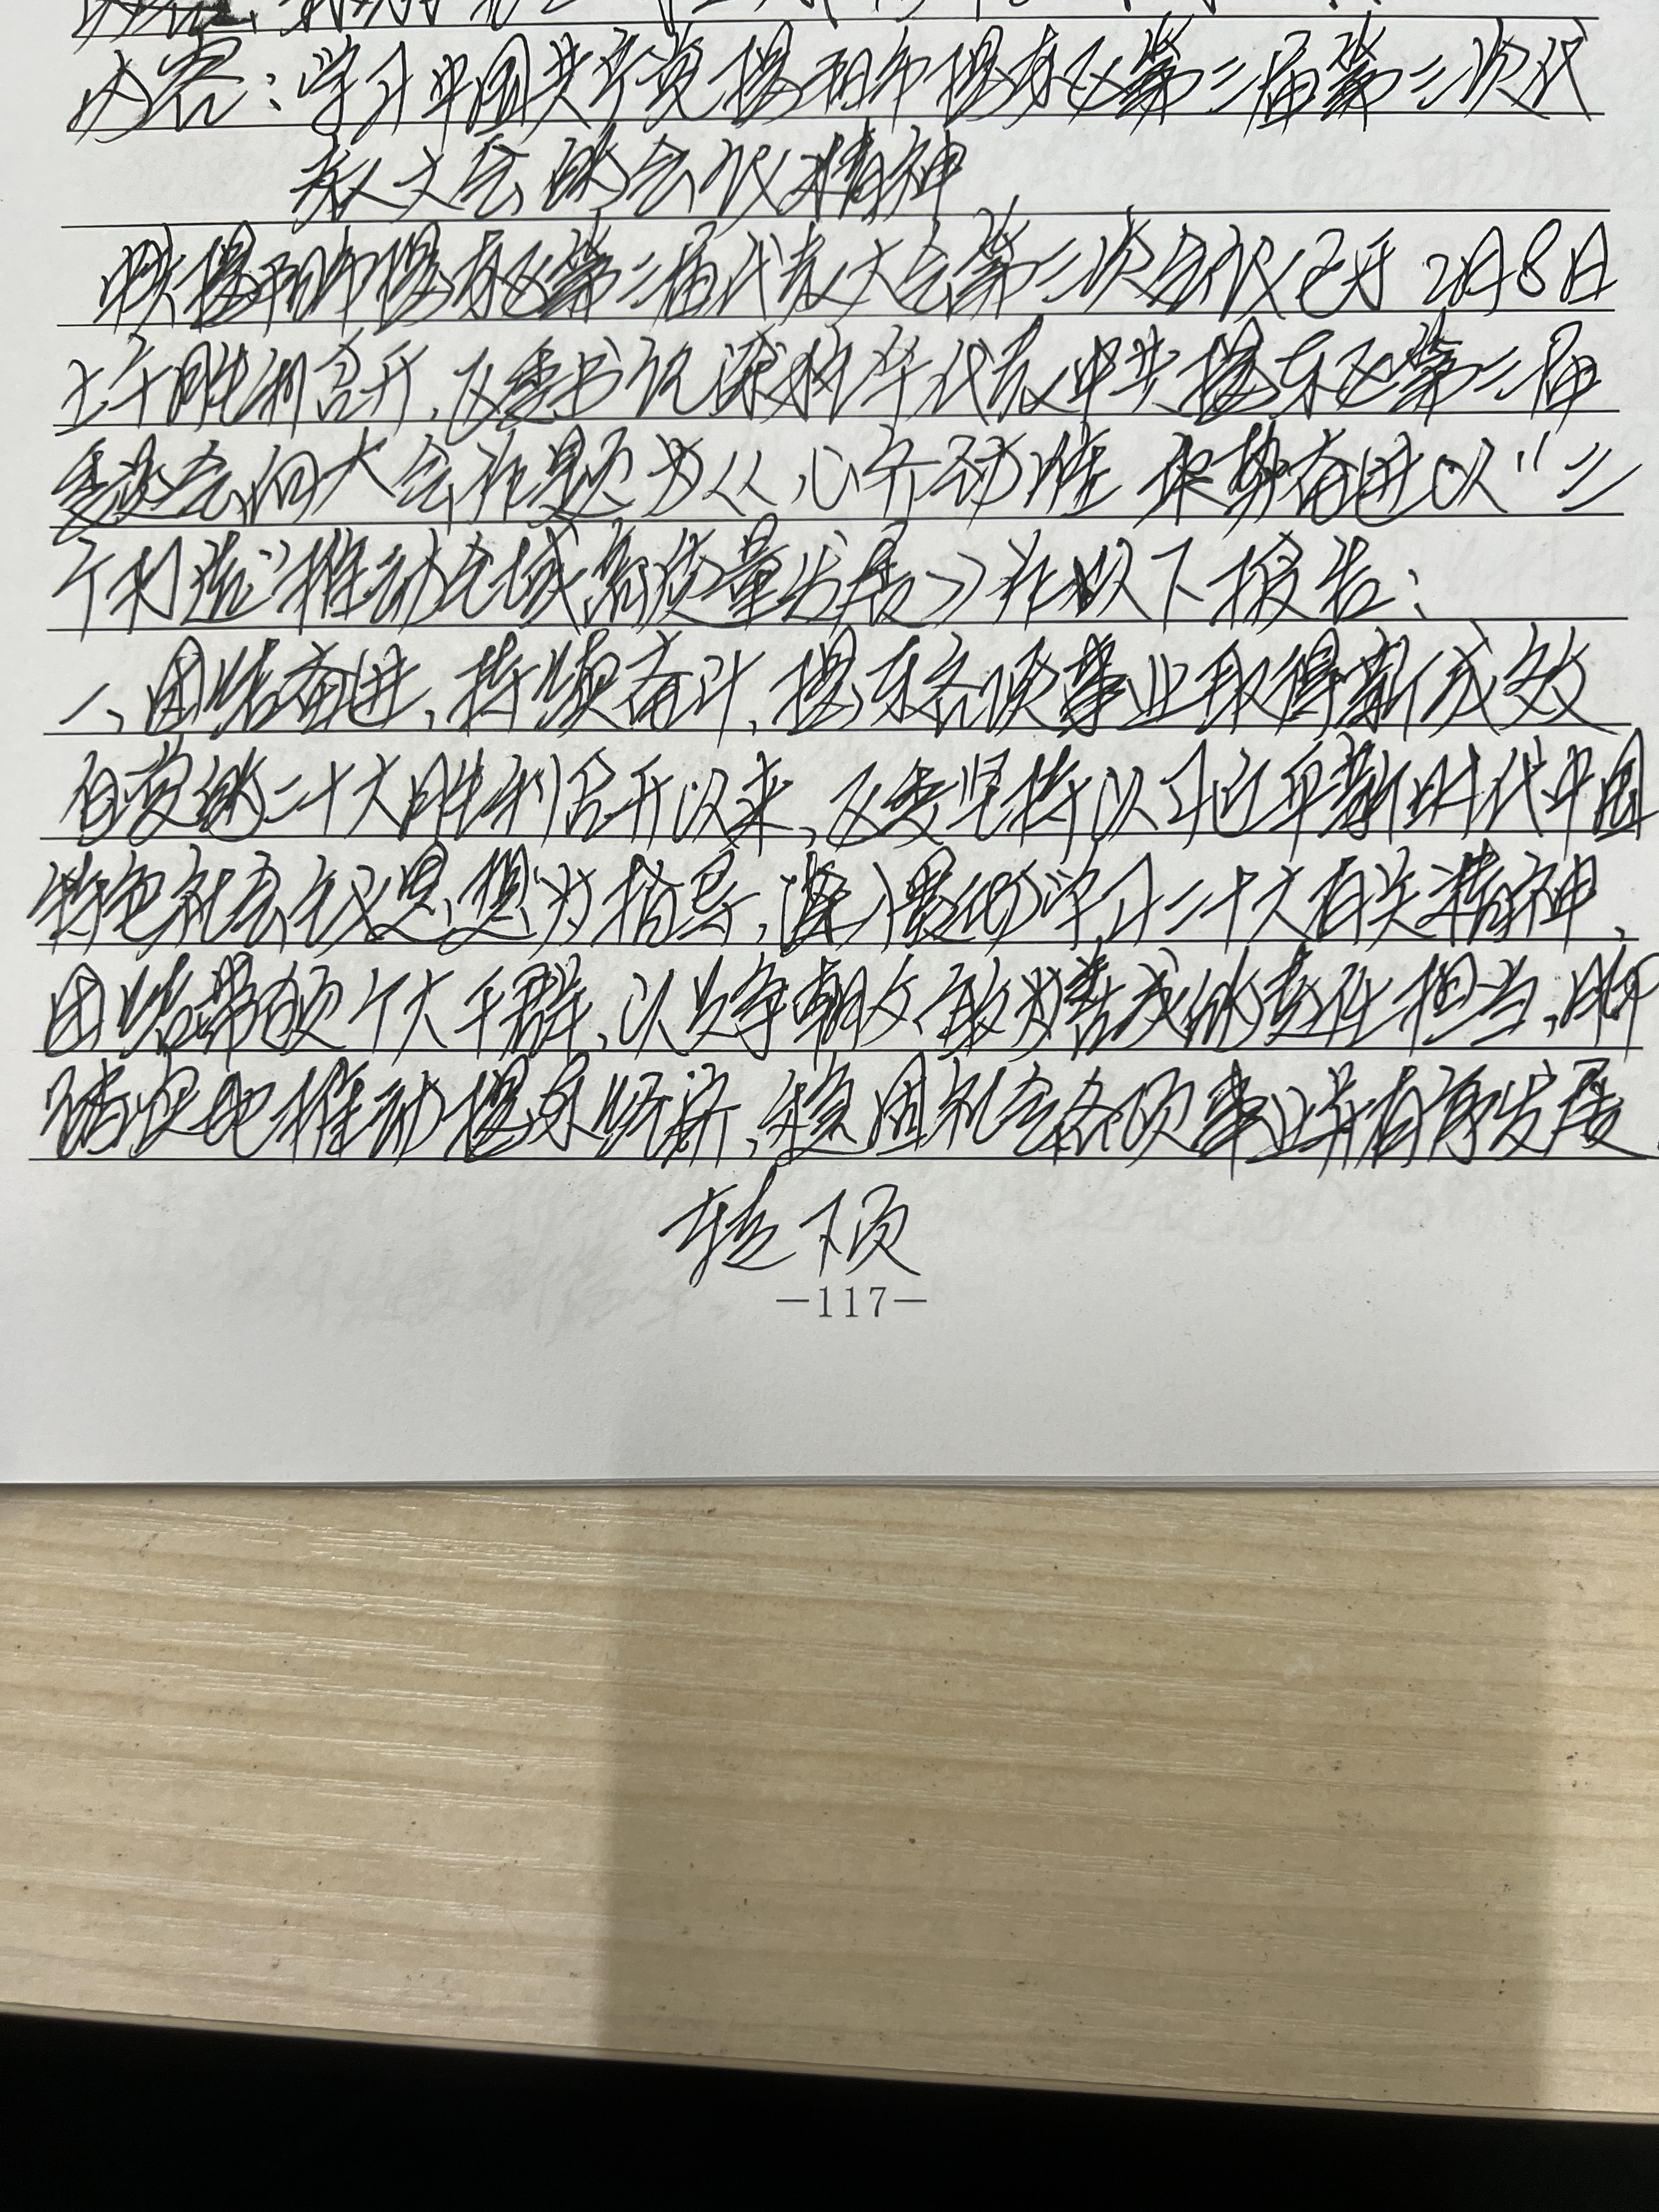 内容:学习中国共产党揭阳市揭东区第二届第三次代
表大会的会议精神
中共揭阳市揭东区第二届代表大会第三次会议已于2月8日
上午胜利召开,区委书记 代表中共揭东区第二届
委员会向大会作题为《心齐劲往 乘势奋进以“三
个 推动全域高质量发展》作以下报告:
一、团结奋进,持续奋斗,揭东各项事业取得新成效
自党的二十大胜利召开以来,区委坚持以习近平新时代中国
特色社会主义思想为指导,深入贯彻学习二十大有关精神,
团结带领广大干群,以 争朝夕、敢为善成的责任担当,脚
踏实地推动揭东经济、 社会各项事业 有序发展,
转下页
—117—